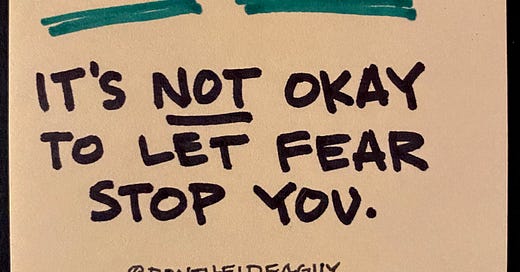 IT'S NOT OKAY
TO LET FEAR
STOP YOU.